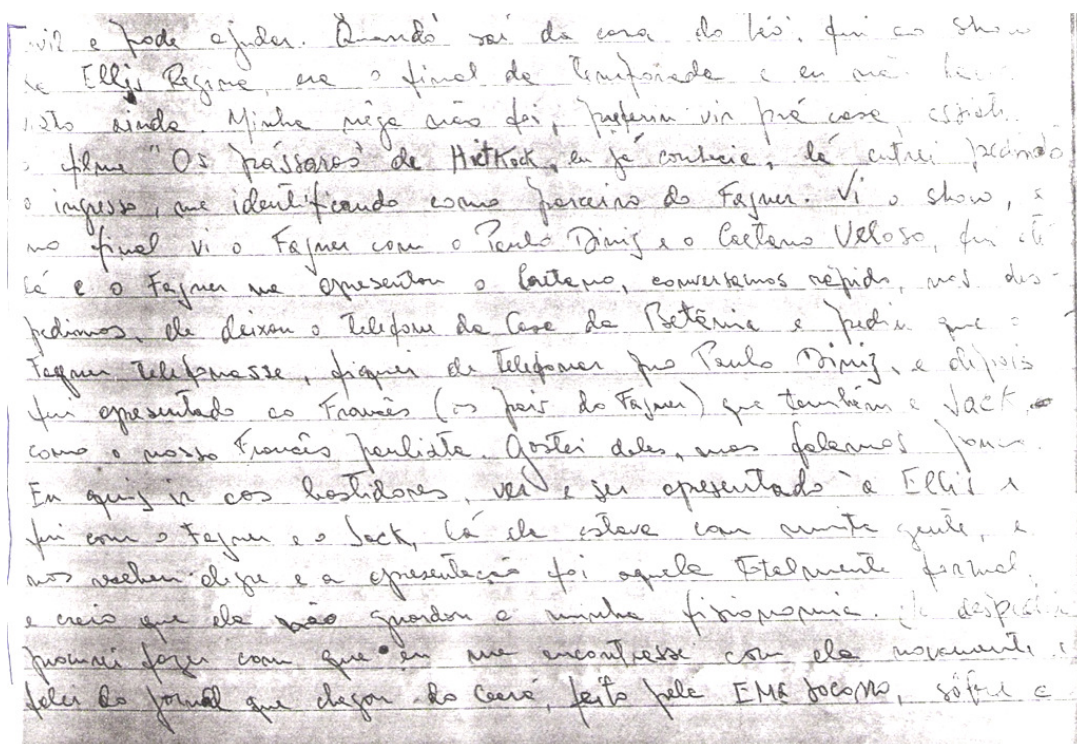 vir e pode ajudar. Quando saí da casa do Léo, fui ao show
de Ellis Regina, era o final de temporada e eu não havia
visto ainda. Minha nêga não foi, preferiu vir prá casa, assistir
o filme "Os pássaros" de HitKock, eu já conhecia, lá entrei pedindo
o ingresso, me identificando como parceiro do Fagner. Vi o show, e
no final vi o Fagner com o Paulo Diniz e o Caetano Veloso, fui até
lá e o Fagner me apresentou o Caetano, conversamos rápido, nos des-
pedimos, ele deixou o telefone da Casa da Betânia e pediu que o
Fagner telefonasse, fiquei de telefonar pro Paulo Diniz, e depois
fui apresentado ao Francês (os pais do Fagner) que também é Jack,
como o nosso Francês paulista. Gostei deles, mas falamos pouco.
Eu quiz ir aos bastidores, ver e ser apresentado a Ellis e
fui com o Fagner e o Jack, lá ela estava com muita gente, e
nos recebeu alegre e a apresentação foi aquela totalmente formal,
e creio que ela não guardou a minha fisionomia. despedida
procurei fazer com que eu me encontrasse com ela novamente e
falei do jornal que chegou do Ceará, feito pela sôfre e